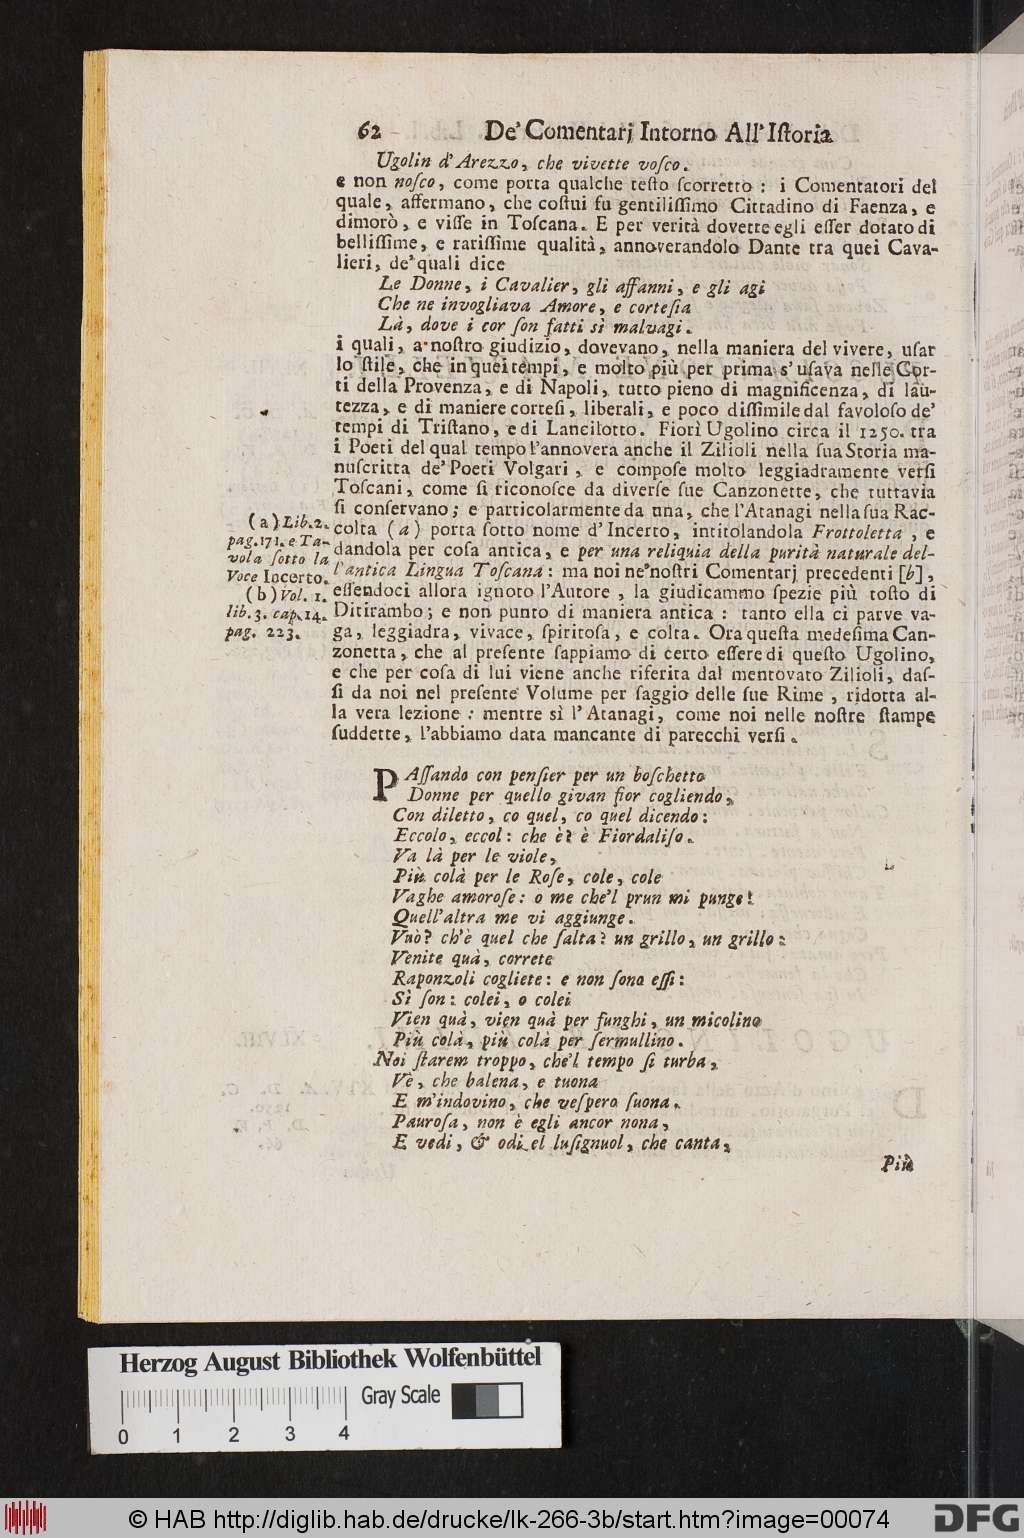 62 De' Comentarj Intorno All' Iſtoria
Ugolin d' Arezzo, che vivette voſco.
e non noſco, come porta qualche teſto ſcorretto: i Comentatori del
quale, affermano, che coſtui fu gentiliſſimo Cittadino di Faenza, e
dimorò, e viſſe in Toſcana. E per verità dovette egli eſſer dotato di
belliſſime, e rariſſime qualità, annoverandolo Dante tra quei Cava-
lieri, de' quali dice
Le Donne, i Cavalier, gli affanni, e gli agi
Che ne invogliava Amore, e corteſia
Là, dove i cor ſon fatti sì malvagi.
i quali, a noſtro giudizio, dovevano, nella maniera del vivere, uſar
lo ſtile, che in quei tempi, e molto più per prima s' uſava nelle Cor-
ti della Provenza, e di Napoli, tutto pieno di magnificenza, di lau-
tezza, e di maniere corteſi, liberali, e poco diſſimile dal favoloſo de'
tempi di Triſtano, e di Lancilotto. Fiorì Ugolino circa il 1250. tra
i Poeti del qual tempo l'annovera anche il Zilioli nella ſua Storia ma-
nuſcritta de' Poeti Volgari, e compoſe molto leggiadramente verſi
Toſcani, come ſi riconoſce da diverſe ſue Canzonette, che tuttavia
ſi conſervano; e particolarmente da una, che l'Atanagi nella ſua Rac-
colta (a) porta ſotto nome d' Incerto, intitolandola Frottoletta, e
dandola per coſa antica, e per una reliquia della purità naturale del-
l'antica Lingua Toſcana: ma noi ne' noſtri Comentarj precedenti [b],
eſſendoci allora ignoto l'Autore, la giudicammo ſpezie più toſto di
Ditirambo; e non punto di maniera antica: tanto ella ci parve va-
ga, leggiadra, vivace, ſpiritoſa, e colta. Ora queſta medeſima Can-
zonetta, che al preſente ſappiamo di certo eſſere di queſto Ugolino,
e che per coſa di lui viene anche riferita dal mentovato Zilioli, daſ-
ſi da noi nel preſente Volume per ſaggio delle ſue Rime, ridotta al-
la vera lezione: mentre sì l' Atanagi, come noi nelle noſtre ſtampe
ſuddette, l'abbiamo data mancante di parecchi verſi.
(a) Lib. 2.
pag. 171. e Ta-
vola ſotto la
Voce Incerto.
(b) Vol. 1.
lib. 3. cap. 14.
pag. 223.
PAſſando con penſier per un boſchetto
Donne per quello givan fior cogliendo,
Con diletto, co quel, co quel dicendo:
Eccolo, eccol: che è? è Fiordaliſo.
Va là per le viole,
Più colà per le Roſe, cole, cole
Vaghe amoroſe: o me che'l prun mi punge!
Quell'altra me vi aggiunge.
Vuò? ch'è quel che ſalta? un grillo, un grillo:
Venite quà, correte
Raponzoli cogliete: e non ſono eſſi:
Sì ſon: colei, o colei
Vien quà, vien quà per funghi, un micolino
Più colà, più colà per ſermullino.
Noi ſtarem troppo, che'l tempo ſi turba,
Vè, che balena, e tuona
E m'indovino, che veſpero ſuona.
Pauroſa, non è egli ancor nona,
E vedi, & odi el luſignuol, che canta,
Più
Herzog August Bibliothek Wolfenbüttel
Gray Scale
0 1 2 3 4
© HAB http://diglib.hab.de/drucke/lk-266-3b/start.htm?image=00074
DFG